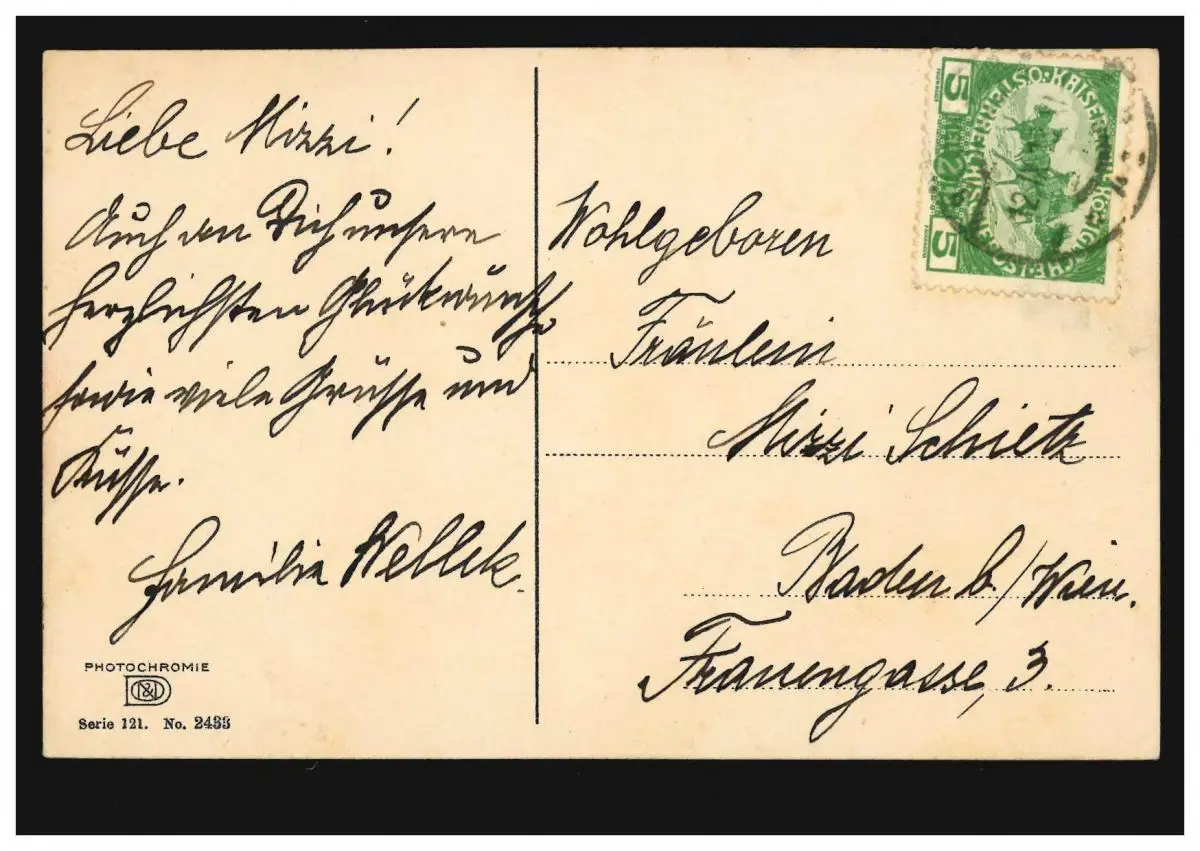 Liebe Mizzi!
Auch an Dich unsere
herzlichsten Glückwünsche
sowie viele Grüsse und
Küsse.
Familie Wellek.
PHOTOCHROMIE
Serie 121. No. 2433
5 5
KAISERLICHE KÖNIGLICHE ÖSTERREICHISCHE POST
Wohlgeboren
Fräulein
Mizzi Schietz
Baden b/Wien.
Frauengasse, 3.